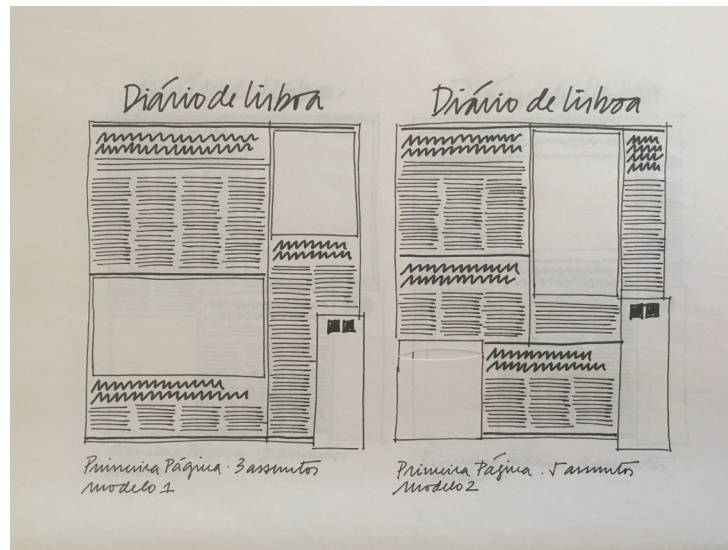 Diário de lisboa
Primeira Página · 3 assuntos
modelo 1
Diário de lisboa
Primeira Página · 5 assuntos
modelo 2